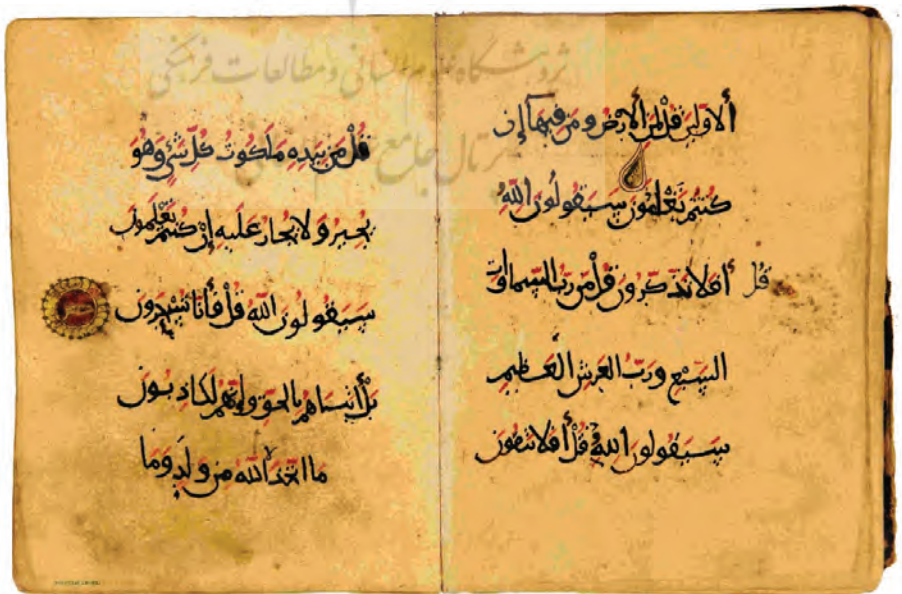 پژوهشگاه علوم انسانی و مطالعات فرهنگی
پرتال جامع
ألاولين قُلْ لمن ألارض ومن فيها إن
كنتم تَعْلمون سيقولون اللهُ
قل أفلا تذكّرون قُلْ من ربّ السماوات
السبع وربّ العرش العظيم
سيقولون الله قُلْ أفلا تتقون
قُلْ من بيده ملكوت كلّ شيء وهُوَ
يجير ولا يجار عليه إنْ كنتم تَعْلمون
سيقولون الله قُلْ فأنا تسحرون
بلْ أتيناهم بالحق وإنهم لكاذبون
ما اتخذ الله من ولد وما